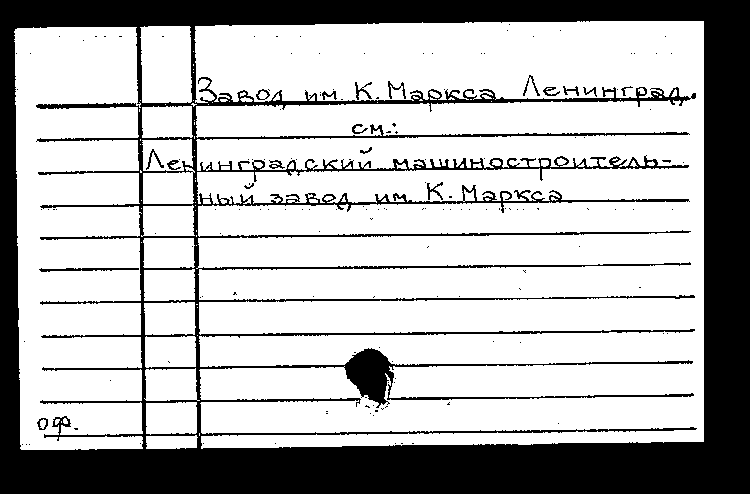 Завод им К. Маркса. Ленинград.
см.:
Ленинградский машиностроитель-
ный завод им. К. Маркса
оф.